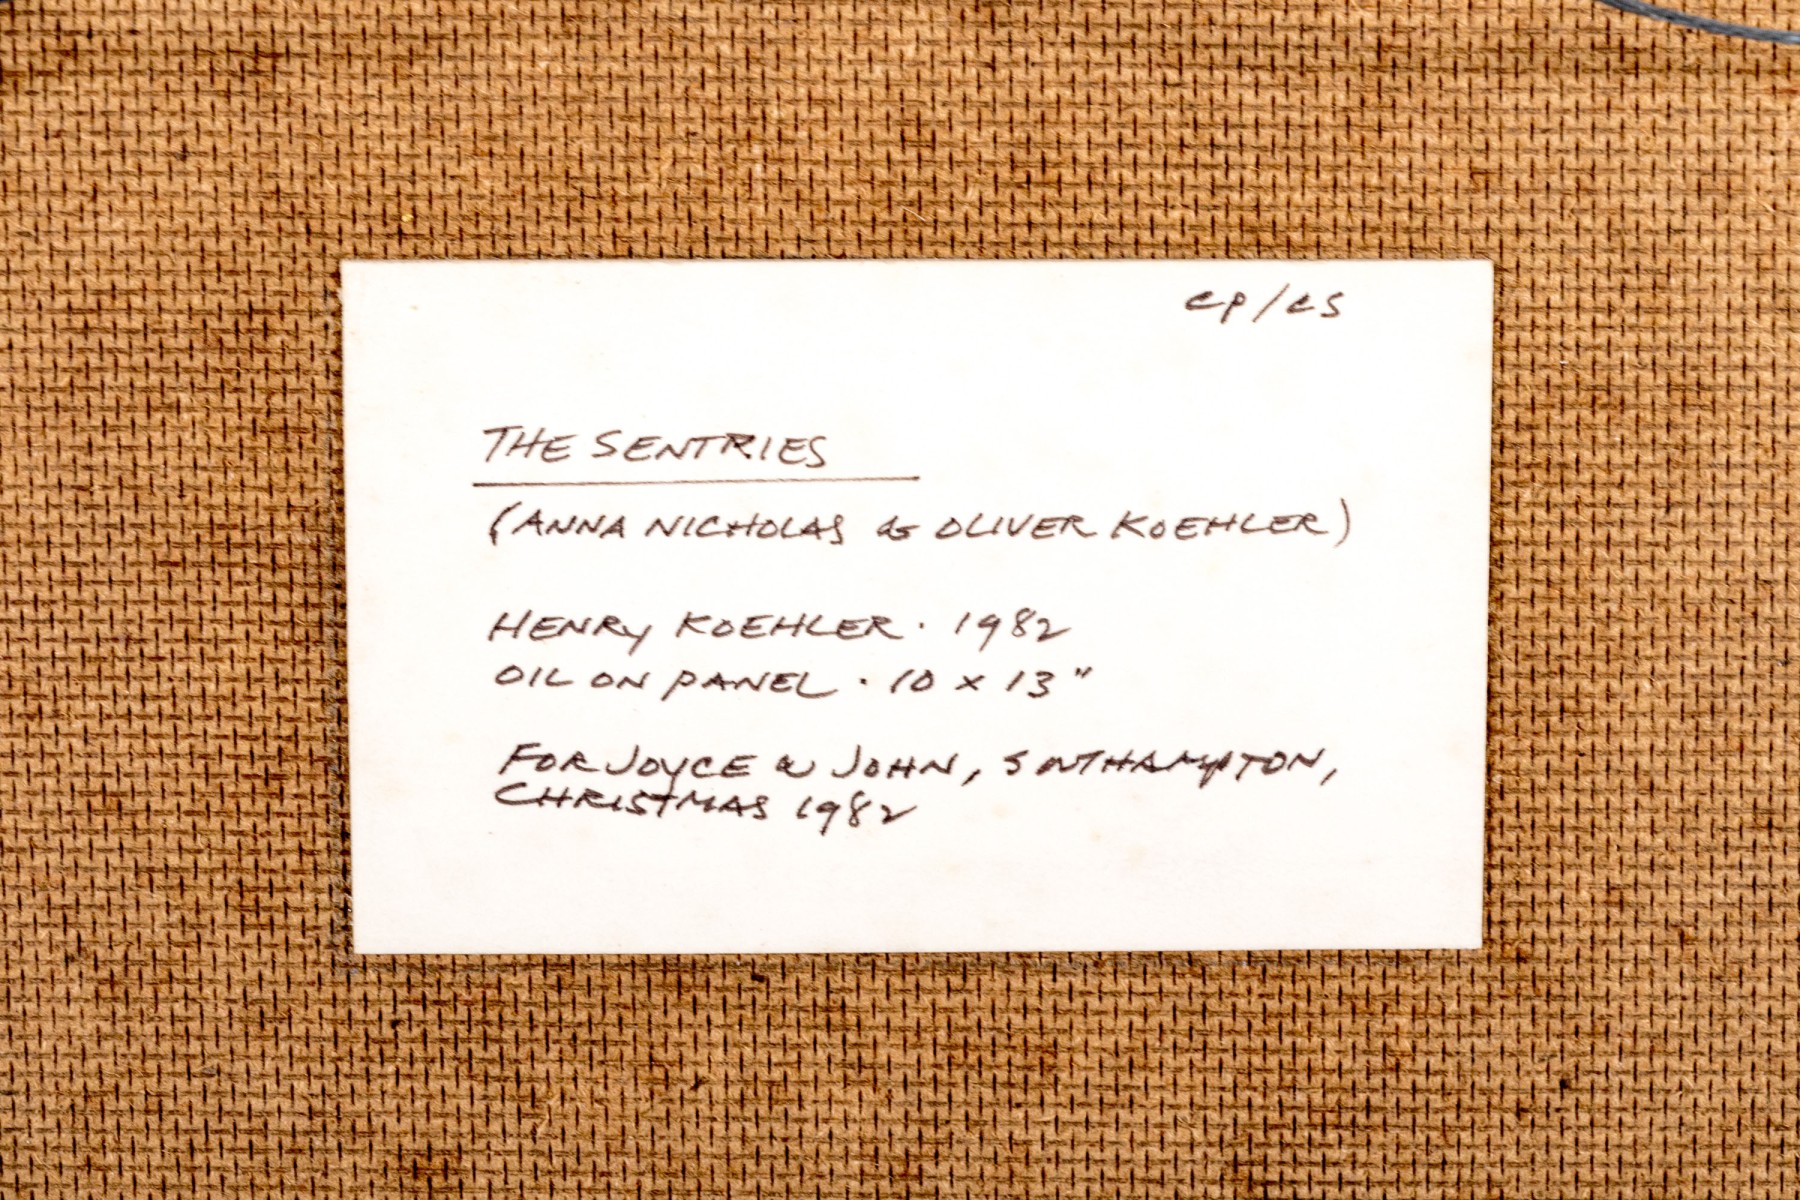 CP/CS
THE SENTRIES
(ANNA NICHOLAS & OLIVER KOEHLER)
HENRY KOEHLER · 1982
OIL ON PANEL · 10 x 13"
FOR JOYCE & JOHN, SOUTHAMPTON,
CHRISTMAS 1982